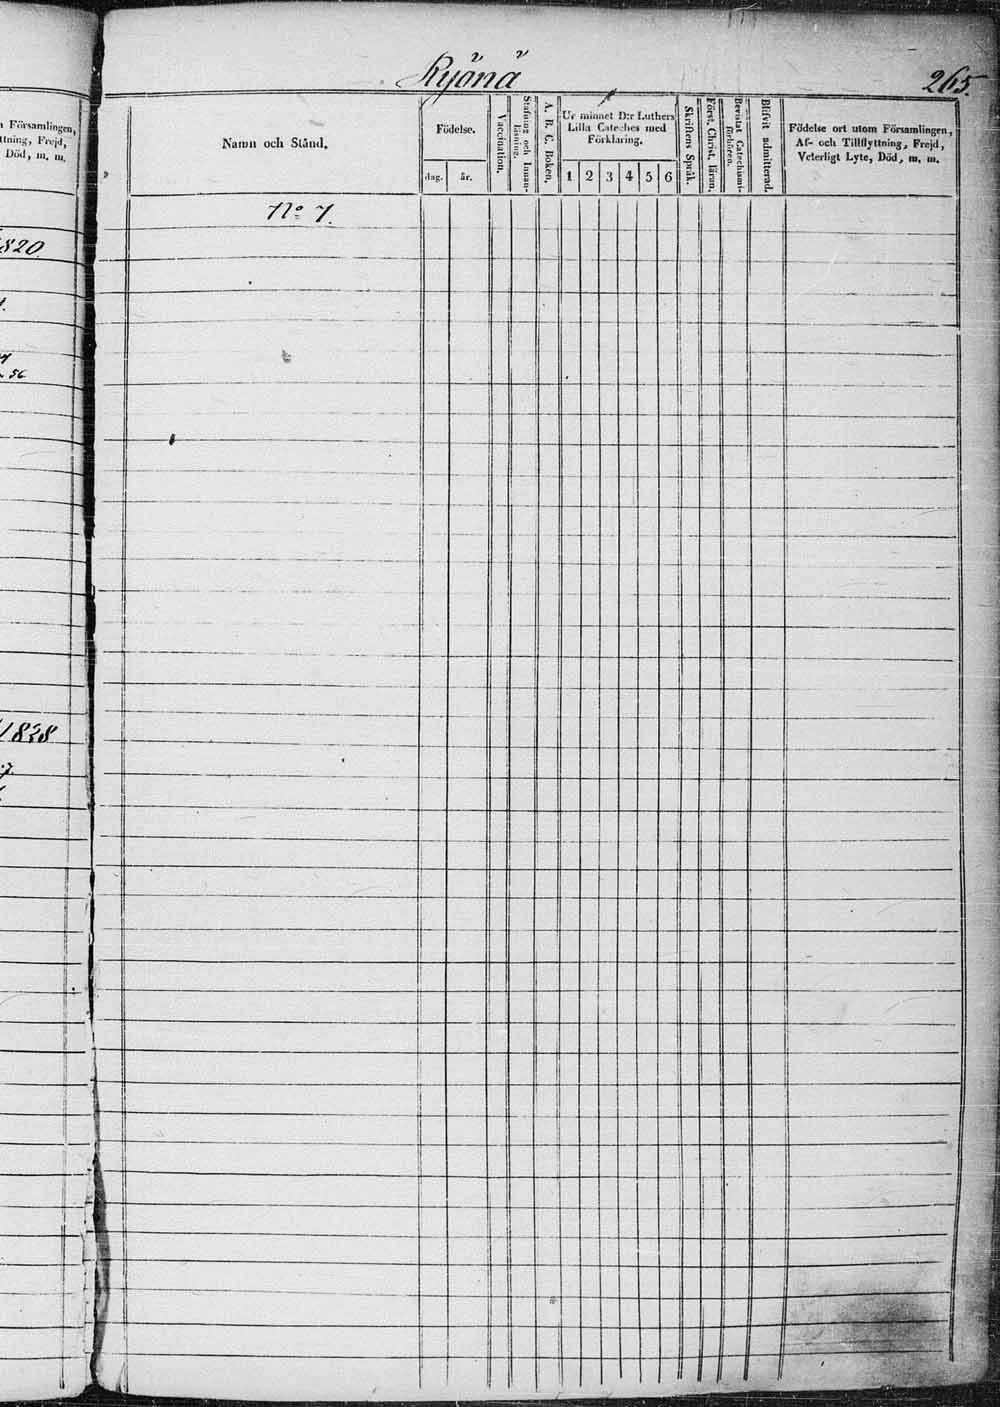 Församlingen,
ttning, Frejd,
Död, m, m.
820
56
1838
Ryönä
265.
Namn och Stånd.
Födelse.
dag.
år.
Vaccination.
Stafning och Innan-
läsning.
A. B. C. Boken.
Ur minnet D:r Luthers
Lilla Cateches med
Förklaring.
1 2 3 4 5 6
Skriftens Språk.
Först. Christ. läran.
Bevistat Catechismi-
förhören.
Blifvit admitterad.
Födelse ort utom Församlingen,
Af- och Tillflyttning, Frejd,
Veterligt Lyte, Död, m. m.
No 7.